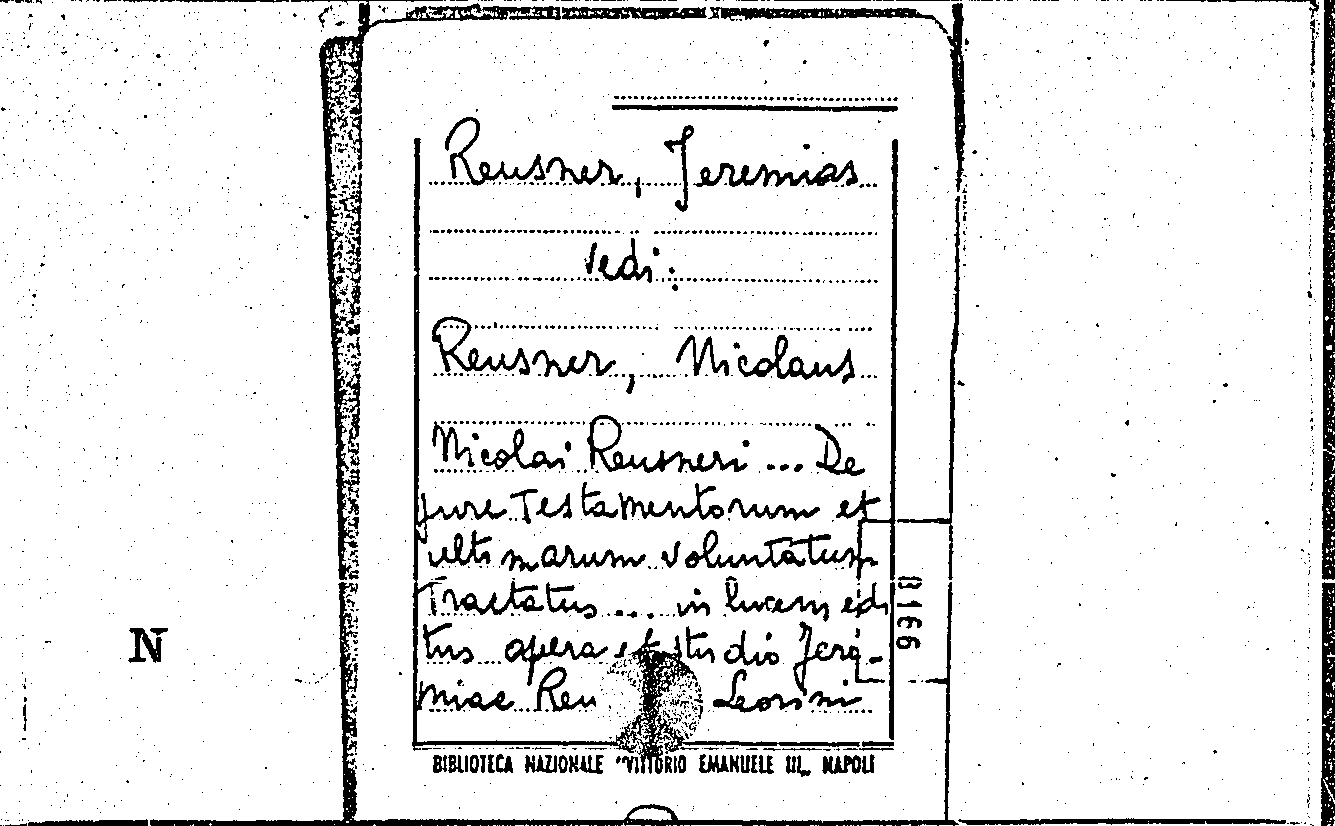 Reusner, Jeremias
Vedi:
Reusner, Nicolaus
Nicolai Reusneri ... De
jure Testamentorum et
ultimarum voluntatum
Tractatus ... in lucem edi
tus opera et studio Jere-
miae Reu Leorini
BIBLIOTECA NAZIONALE "VITTORIO EMANUELE III„ NAPOLI
B166
N